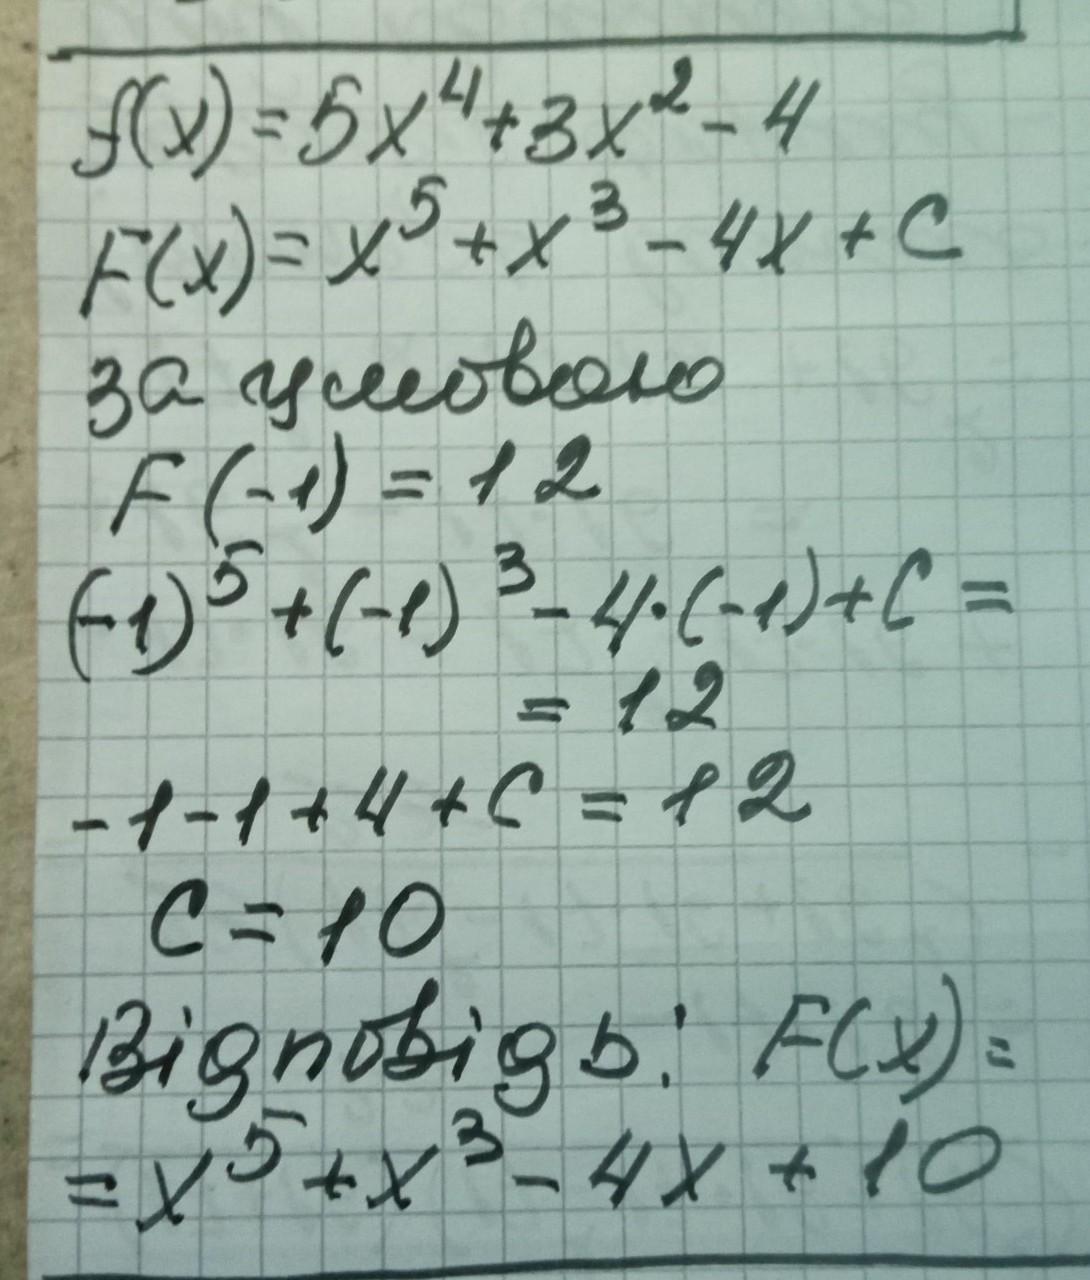 f(x) = 5x⁴ + 3x² - 4
F(x) = x⁵ + x³ - 4x + C
За умовою
F(-1) = 12
(-1)⁵ + (-1)³ - 4·(-1) + C =
= 12
-1 - 1 + 4 + C = 12
C = 10
Відповідь: F(x) =
= x⁵ + x³ - 4x + 10